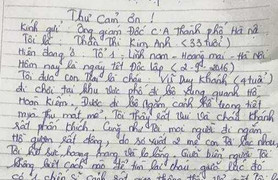 Thư cảm ơn !
Kính gửi : Ông giám Đốc C.A Thành phố Hà nội
Tôi là : Thị Kim Anh (33 tuổi)
Hiện đang ở Tổ 1 : Lĩnh nam - Hoàng mai - Hà Nội
Hôm nay là ngày tết Độc lập (2-9-2016)
Tôi đưa con tôi là cháu Duy Khánh (4 tuổi)
đi chơi tại khu vực phố đi bộ xung quanh Hồ
Hoàn Kiếm. Được đi bộ ngắm cảnh hồ trong tiết
mùa thu mát mẻ, Tôi Thấy rất vui và cháu Khánh
rất phấn khích. Cũng như Tôi mọi người đi ngắm
Hồ gươm rất đông, do sơ xuất 2 mẹ con Tôi lạc nhau,
Tôi hết sức hoang mang và lo lắng. Giữa biển người Tôi
không biết cách nào để tìm lại cháu, giữa lúc đó
có 1 chiến sĩ cảnh sát